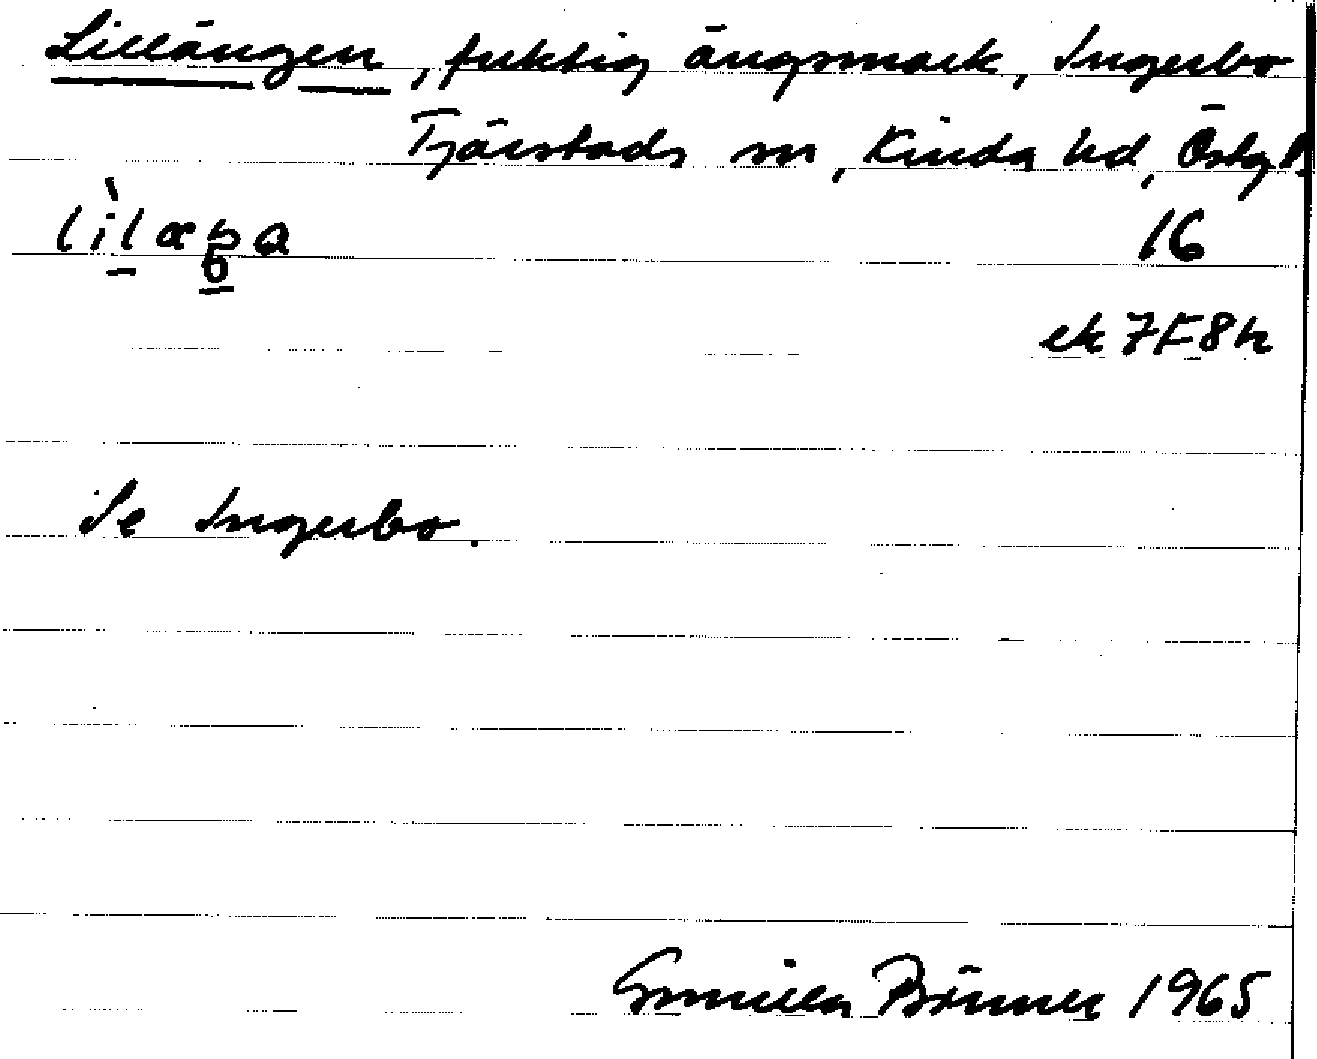 Lillängen, fuktig ängsmark, Ingerbo
Tjärstads sn, Kinda hd, Östg l.
16
ek 7F8h
Se Ingerbo.
Gunilla Brinner 1965